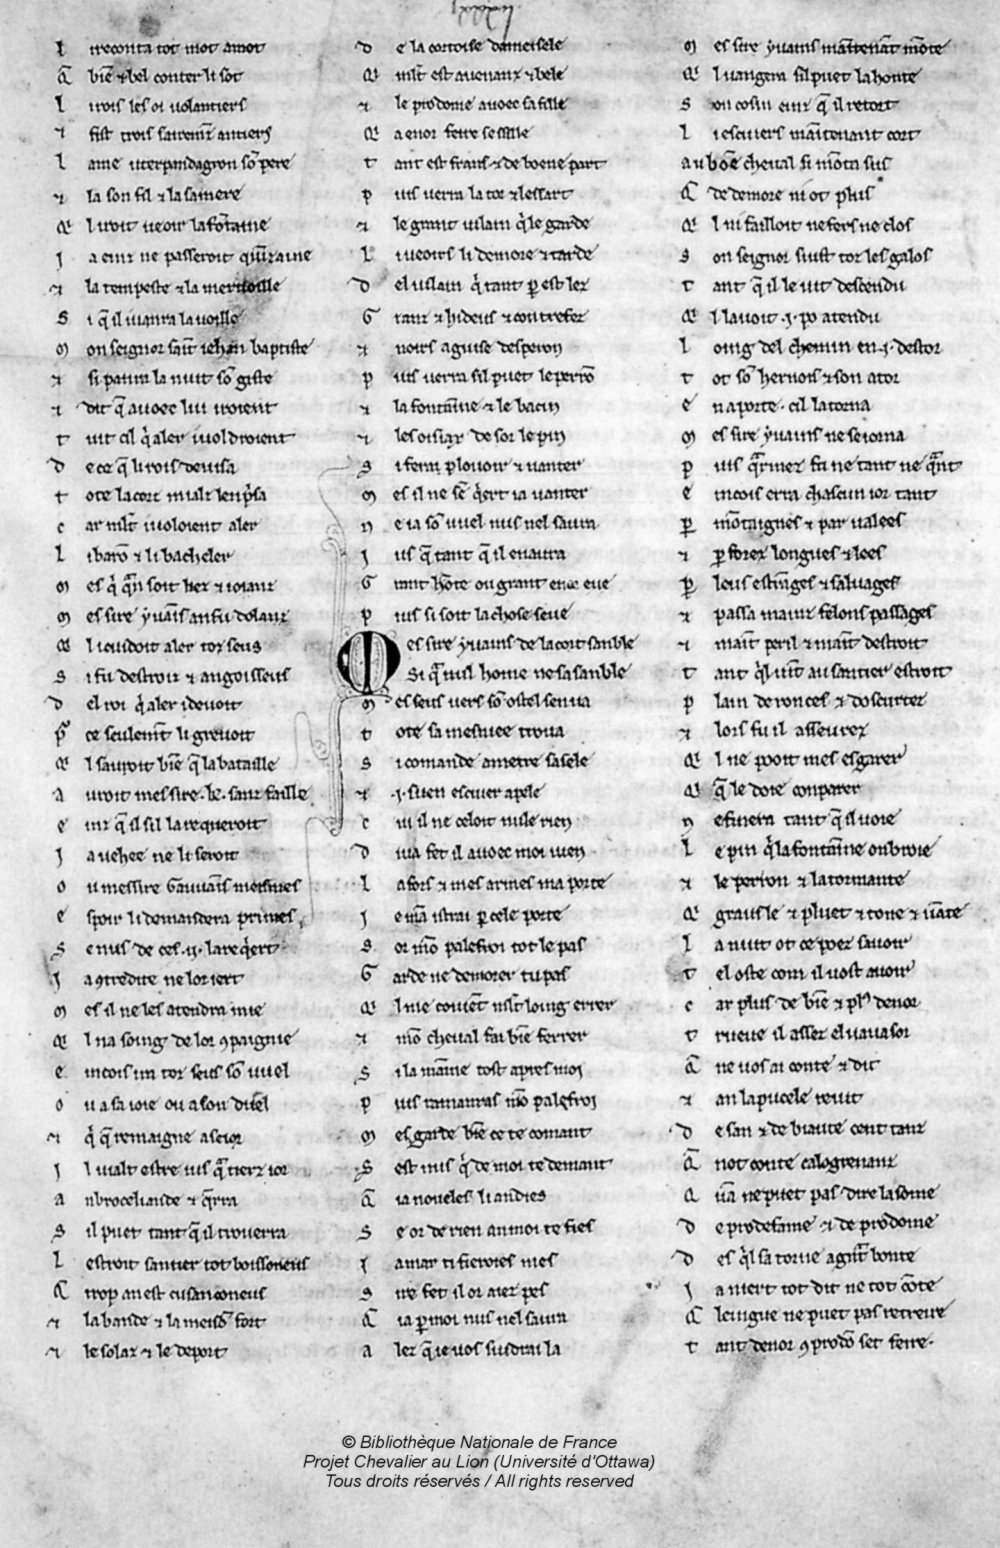 L i reconta tot mot a mot
Q̃ biẽ ⁊ bel conter li sot
L i rois les oi volantiers
⁊ fist trois sairemẽz antiers
L ame vterpandagron sõ pere
⁊ la son fil ⁊ la sa mere
Q̃ l iroit veoir la fõtainne
J a einz ne passeroit quinzainne
⁊ la tempeste ⁊ la mervoille
S i q̃ il i vanra la voille
M on seignor saĩt iehan baptiste
⁊ si panra la nuit sõ giste
⁊ dit q̃ avoec lui iroient
T uit cil q̃ aler i voldroient
D e ce q̃ li rois devisa
T ote la corz mialz len p̃sa
C ar mlt̃ i voloient aler
L i barõ ⁊ li bacheler
M es q̃ q̃ñ soit liez ⁊ ioianz
M es sire yvaĩs an fu dolanz
Q̃ l i cuidoit aler toz seus
S i fu destroiz ⁊ angoisseus
D el roi q̃ aler i devoit
P̃ ce seulemt̃ li grevoit
Q̃ l savoit biẽ q̃ la bataille
A vroit mes sire .ke. sanz faille
E inz q̃ il sil la requeroit
J a vehee ne li seroit
O u mes sire Gauvains meismes
E spoir li demandera primes
S e nus de ces .ij. la req̃ert
J a 9tredite ne lor iert
M es il ne les atendra mie
Q̃ l na soing de lor 9paignie
E incois ira toz seus sõ vuel
O u a sa ioie ou a son duel
⁊ q̃ q̃ remaigne a seior
J l vialt estre ius q̃ tierz ior
A n broceliande ⁊ q̃rra
S il puet tant q̃ il troverra
L estroit santier tot boissoneus
Q̃ trop an est cusanconeus
⁊ la lande ⁊ la meisõ fort
⁊ le solaz ⁊ le deport
D e la cortoise dameisele
Q̃ mlt̃ est avenanz ⁊ bele
⁊ le prodome avoec sa fille
Q̃ a enor feire sessille
T ant est frans ⁊ de boene part
P uis verra la tor ⁊ lessart
⁊ le grant vilain q̃ le garde
L i veoirs li demore ⁊ tarde
D el vilain q̃ tant p̃ est lez
G ranz ⁊ hideus ⁊ contrefez
⁊ noirs a guise desperon
P uis verra sil puet le perrõ
⁊ la fontainne ⁊ le bacin
⁊ les oisiax de sor le pin
S i fera plovoir ⁊ vanter
M es il ne sẽ q̃ert ia vanter
N e ia sõ vuel nus nel savra
J us q̃ tant q̃ il en avra
G rant hõte ou grant enor eue
P uis si soit la chose seue
M es sire yvains de la cort sanble
Si q̃ nul home ne sasanble
M es seus vers sõ ostel sen va
T ote sa mesniee trova
S i comande a metre sa sele
⁊ .j. suen escuier apele
C ui il ne celoit nule rien
D iva fet il avoec moi vien
L a fors ⁊ mes armes ma porte
J e mẽ istrai p̃ cele porte
S or mõ palefroi tot le pas
G arde ne demorer tu pas
Q̃ l me coviẽt mlt̃ loing errer
⁊ mõ cheval fai biẽ ferrer
S i lamainne tost apres moi
P uis ramanras mõ palefroi
M es garde biẽ ce te comant
S est nus q̃ de moi te demant
Q̃ ia noveles li an dies
S e or de rien an moi te fies
J a mar ti fieroies mes
S ire fet il or aiez pes
Q̃ ia p̃ moi nus nel savra
A lez q̃ ie vos sivdrai la
M es sire yvains maintenãt mõte
Q̃ l vangera sil puet la honte
S on cosin einz q̃ il retort
L i escuiers maĩtenant cort
au boẽ cheval si mõta sus
Q̃ de demore ni ot plus
Q̃ l ni failloit ne fers ne clos
S on seignor siust toz les galos
T ant q̃ il le vit descendu
Q̃ l lavoit .j. po atendu
L oing del chemin en .j. destor
T ot sõ hernois ⁊ son ator
E n aporte . cil latorna
M es sire yvains ne seiorna
P uis q̃ armez fu ne tant ne q̃nt
E incois erra chascun ior tant
P̃ mõtaignes ⁊ par valees
⁊ p̃ forez longues ⁊ lees
P̃ leus estrãges ⁊ salvages
⁊ passa mainz felons passages
⁊ maĩt peril ⁊ maĩt destroit
T ant q̃l vĩt au santier estroit
P lain de ronces ⁊ doscurtez
⁊ lors fu il asseurez
Q̃ l ne pooit mes esgarer
Q̃ q̃ le doie conparer
N e finera tant q̃ il voie
L e pin q̃ la fontainne onbroie
⁊ le perron ⁊ la tormante
Q̃ grausle ⁊ pluet ⁊ tone ⁊ vãte
L a nuit ot ce poez savoir
T el oste com il vost avoir
C ar plus de biẽ ⁊ pl9 denor
T rueve il assez el vavasor
Q̃ ne vos ai conte ⁊ dit
⁊ an la pucele revit
D e san ⁊ de biaute cent tanz
Q̃ not conte calogrenanz
Q̃ vã ne puet pas dire la some
D e prode fame ⁊ de prodome
D es q̃l sa torne a grãt bonte
J a niert tot dit ne tot cõte
Q̃ leingue ne puet pas retreire
T ant denor 9 prodõ set feire.
© Bibliothèque Nationale de France
Projet Chevalier au Lion (Université d'Ottawa)
Tous droits réservés / All rights reserved